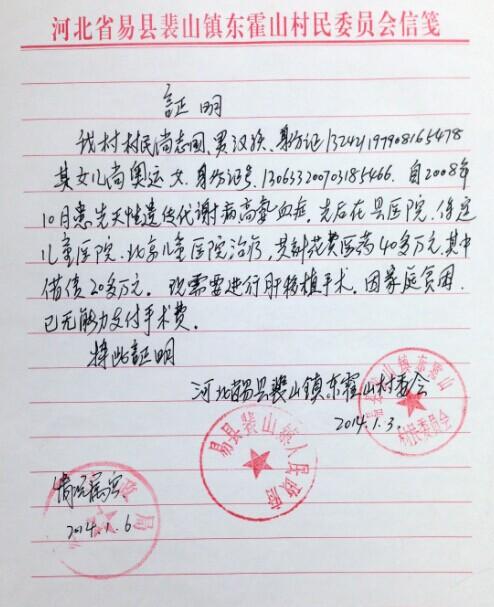 河北省易县裴山镇东霍山村民委员会信笺
証明
我村村民尚志国、男汉族、身份证132421197908165478
其女儿尚奥运 女.身份证号.130633200703185466.自2008年
10月患先天性遗传代谢病高氨血症.先后在县医院、保定
儿童医院.北京儿童医院治疗,共计花费医药40多万元.其中
借债20多万元.现需要进行肝移植手术.因家庭贫困.
已无能力支付手术费.
特此証明
河北省易县裴山镇东霍山村委会
2014.1.3.
易县裴山镇东霍山
村民委员会
易县裴山镇人民政府
情况属实
2014.1.6
政局